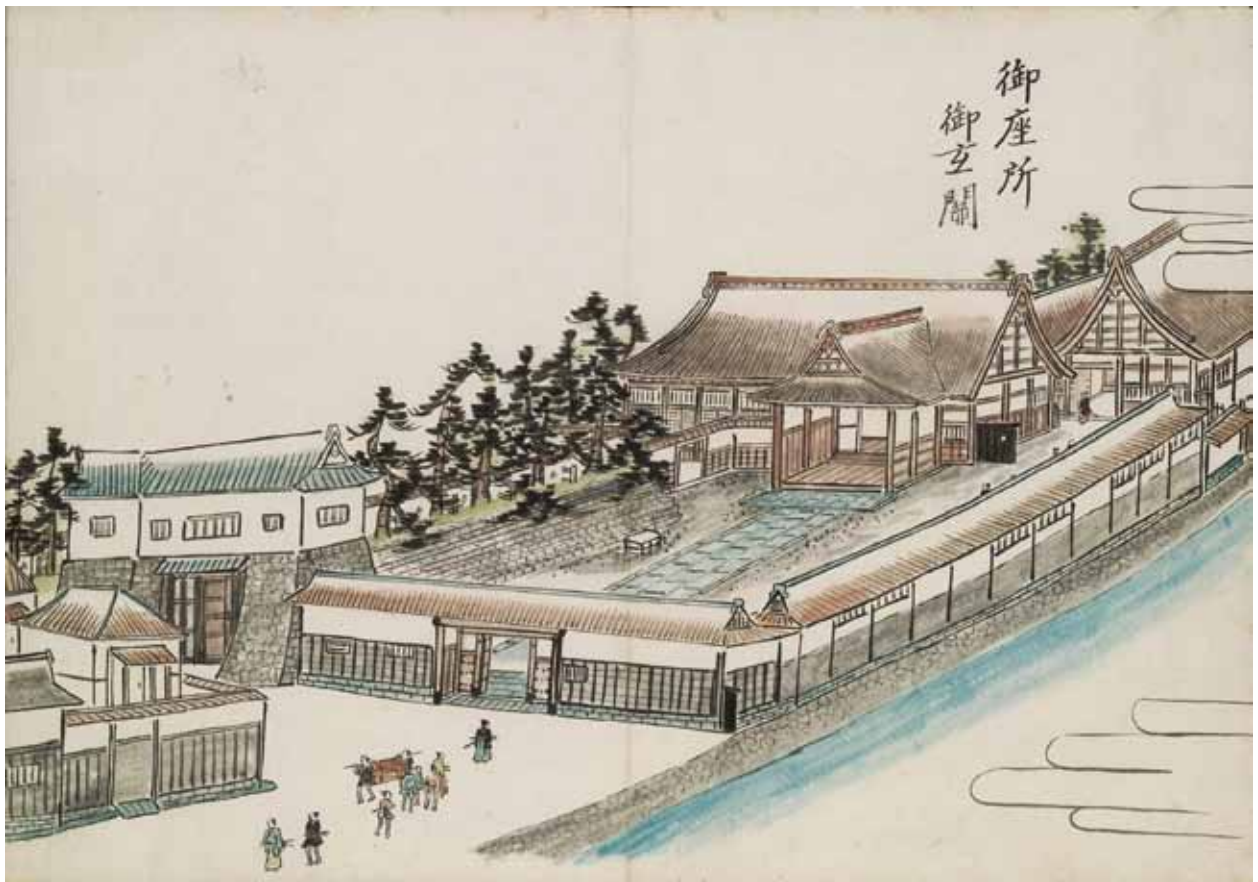 御座所
御玄関